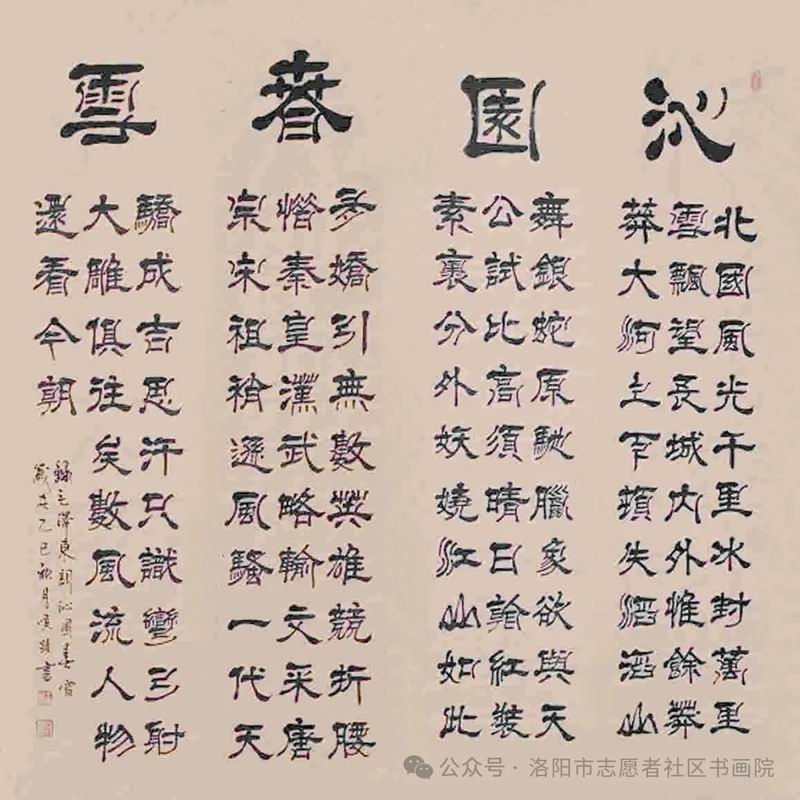 沁園春雪
北國風光千里冰封萬里
雪飄望長城內外惟餘莽
莽大河上下頓失滔滔山
舞銀蛇原馳臘象欲與天
公試比高須晴日看紅裝
素裹分外妖嬈江山如此
多嬌引無數英雄競折腰
惜秦皇漢武略輸文采唐
宗宋祖稍遜風騷一代天
驕成吉思汗只識彎弓射
大雕俱往矣數風流人物
還看今朝
錄毛澤東詞沁園春雪
歲在乙巳秋月書
公众号·洛阳市志愿者社区书画院